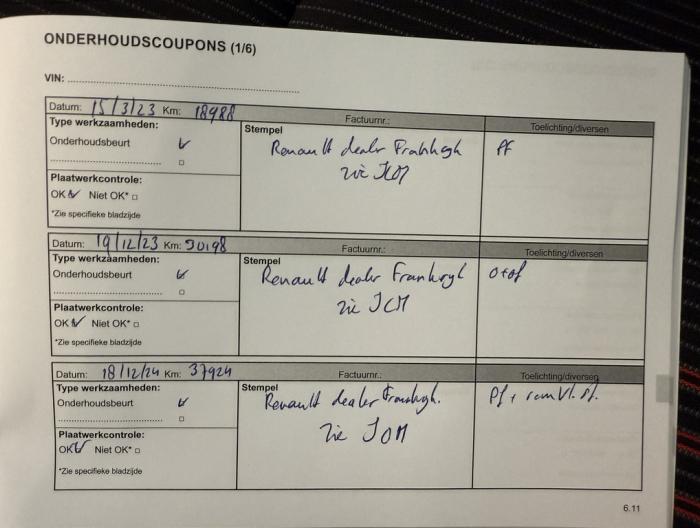 ONDERHOUDSCOUPONS (1/6)
VIN:
Datum: 15/3/23 Km: 18988 Factuurnr.: Toelichting/diversen
Type werkzaamheden: Stempel
Onderhoudsbeurt Renault dealer zie PF
Plaatwerkcontrole:
OK Niet OK*
*Zie specifieke bladzijde
Datum: 19/12/23 Km: 30198 Factuurnr.: Toelichting/diversen
Type werkzaamheden: Stempel
Onderhoudsbeurt Renault dealer zie
Plaatwerkcontrole:
OK Niet OK*
*Zie specifieke bladzijde
Datum: 18/12/24 Km: 37924 Factuurnr.: Toelichting/diversen
Type werkzaamheden: Stempel
Onderhoudsbeurt Renault dealer zie Pf + rem vl.
Plaatwerkcontrole:
OK Niet OK*
*Zie specifieke bladzijde
6.11